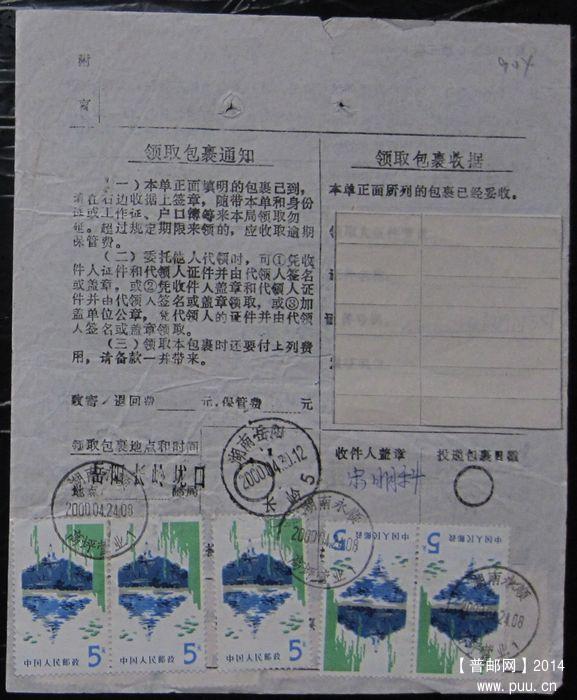 附
言
904
领取包裹通知
(一)本单正面填明的包裹已到,
请在右边收据上签章,随带本单和身份
证或工作证、户口簿等来本局领取勿
延。超过规定期限来领的,应收取逾期
保管费。
(二)委托他人代领时,可①凭收
件人证件和代领人证件并由代领人签名
或盖章,或②凭收件人盖章和代领人证
件并由代领人签名或盖章领取,或③加
盖单位公章,凭代领人的证件并由代领
人签名或盖章领取。
(三)领取本包裹时还要付上列费
用,请备款一并带来。
改寄/退回费 元,保管费 元
领取包裹地点和时间
岳阳长岭
地点
领取包裹收据
本单正面所列的包裹已经妥收。
收件人盖章
投递包裹日戳
湖南岳阳
2000.04.30.12
长岭5
湖南永顺
2000.04.24.08
湖南永顺
2000.04.24.08
湖南永顺
2000.04.24.08
中国人民邮政 5分
中国人民邮政 5分
中国人民邮政 5分
中国人民邮政 5
中国人民邮政 5
【普邮网】2014
www.puu.cn